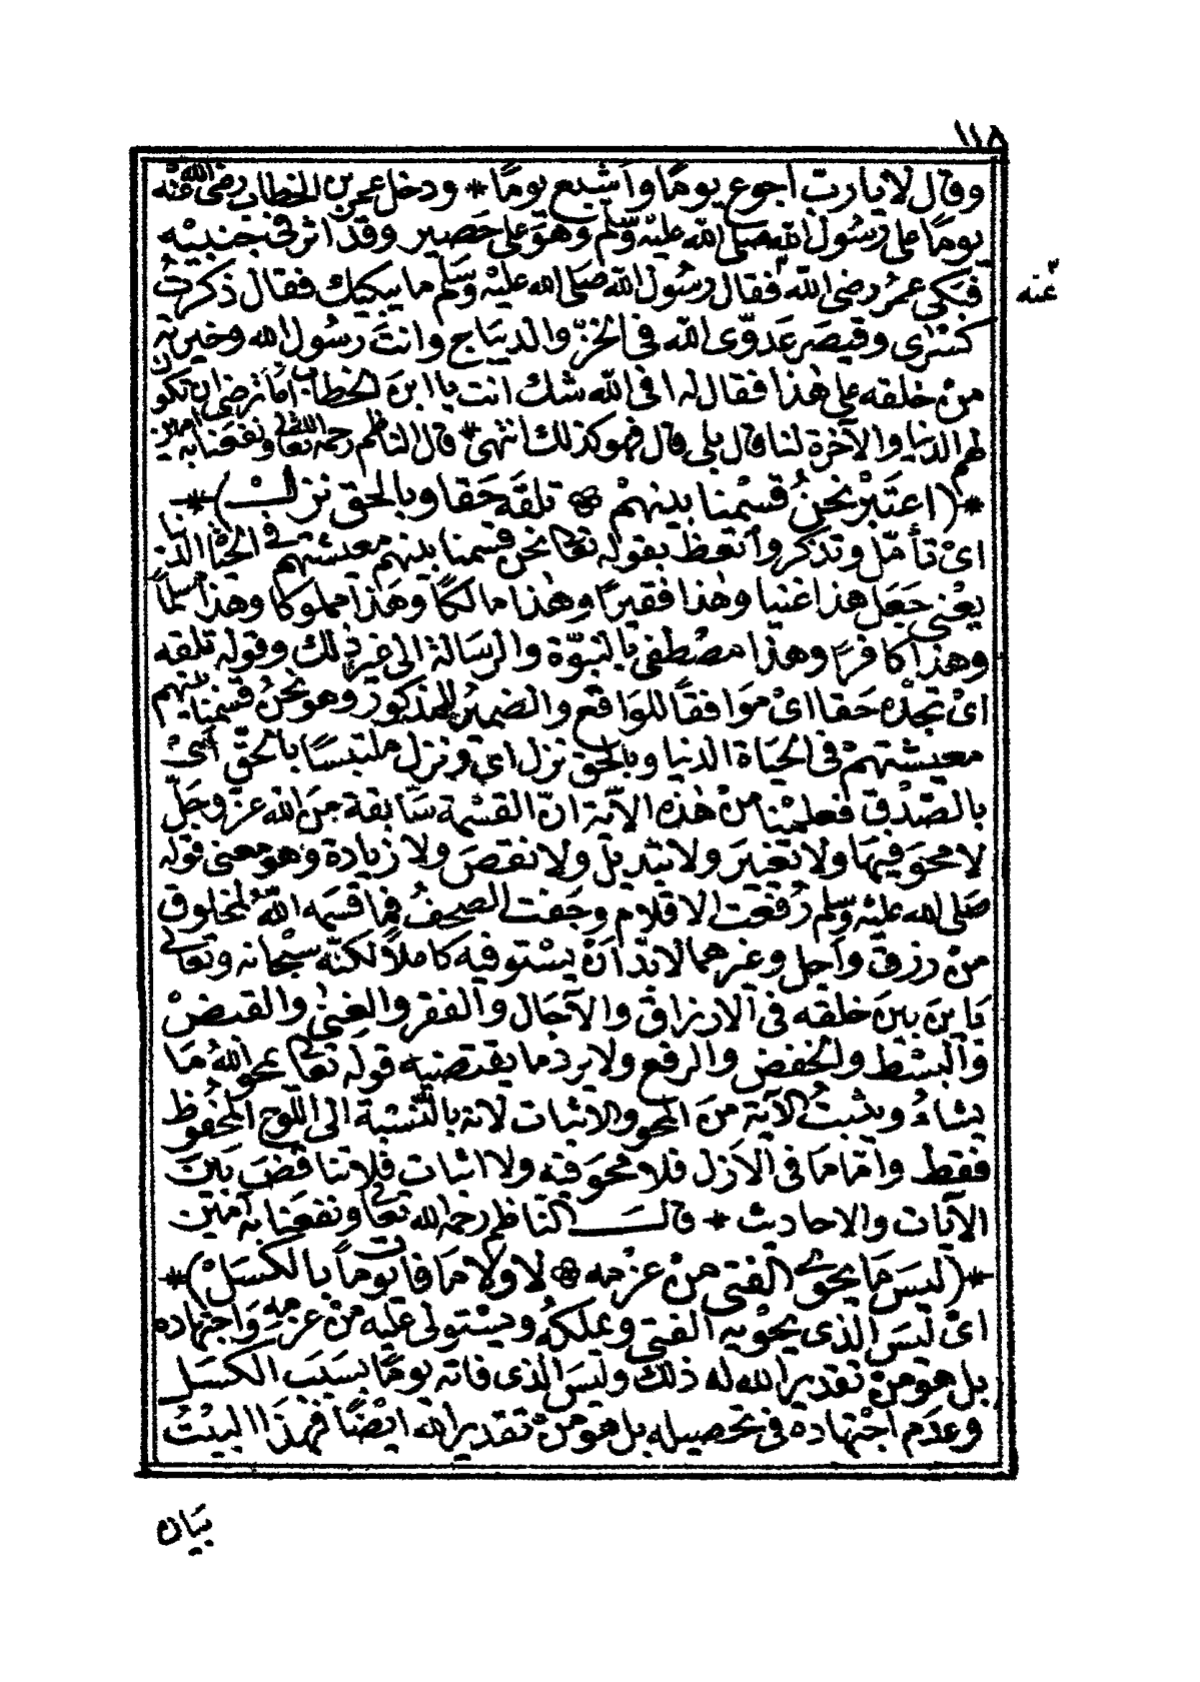 ١١٨
وقال لا يا رب أجوع يومًا وأشبع يومًا * ودخل عمر بن الخطاب رضى الله عنه
يومًا على رسول الله صلى الله عليه وسلم وهو على حصير وقد اثر فى جنبيه
فبكى عمر رضى الله فقال رسول الله صلى الله عليه وسلم ما يبكيك فقال ذكرت
عنه
كسرى وقيصر عدوّى الله فى الخزّ والديباج وانت رسول الله وخيرته
من خلقه على هذا فقال له افى الله شك انت يا ابن الخطاب أما ترضى ان تكون
لهم الدنيا والآخرة لنا قال بلى قال فهو كذلك انتهى * قال الناظم رحمه الله تعالى ونفعنا به امين
*(اعتبر نحن قسمنا بينهم ۞ تلقه حقا وبالحق نزل)*
اى تأمّل وتذكر وأتعظ بقوله تعالى نحن قسمنا بينهم معيشتهم فى الحياة الدنيا
يعنى جعل هذا غنيا وهذا فقيرًا وهذا مالكًا وهذا مملوكا وهذا مسلمًا
وهذا كافرًا وهذا مصطفى بالنبوّة والرسالة الى غير ذلك وقوله تلقه
اى تجده حقا اى موافقًا للواقع والضمير للمذكور وهو نحن قسمنا بينهم
معيشتهم فى الحياة الدنيا وبالحق نزل اى ونزل ملتبسًا بالحقّ أى
بالصدق فعلمنا من هذه الآية انّ القسمة سابقة من الله عزّ وجلّ
لا محو فيها ولا تغير ولا تبديل ولا نقص ولا زيادة وهو معنى قوله
صلى الله عليه وسلم رفعت الاقلام وجفت الصحف فما قسمه الله لمخلوق
من رزق وأجل وغيرهما لا بدّ أن يستوفيه كاملاً لكنّه سبحانه وتعالى
باين بين خلقه فى الارزاق والآجال والفقر والغنى والقبض
والبسط والخفض والرفع ولا يرد ما يقتضيه قوله تعالى يمحو الله ما
يشاء ويثبت الآية من المحو والاثبات لانه بالنّسبة الى اللوح المحفوظ
فقط وأمّا ما فى الأزل فلا محو فيه ولا اثبات فلا تناقض بين
الآيات والاحاديث * قال الناظم رحمه الله تعالى ونفعنا به آمين
*(ليس ما يحوى الفتى من عزمه ۞ لا ولا ما فات يوماً بالكسل)*
اى ليس الذى يحويه الفتى ويملكه ويستولى عليه من عزمه واجتهاده
بل هو من تقدير الله له ذلك وليس الذى فاته يومًا بسبب الكسل
وعدم اجتهاده فى تحصيله بل هو من تقدير الله ايضًا فهذا البيت
بيان